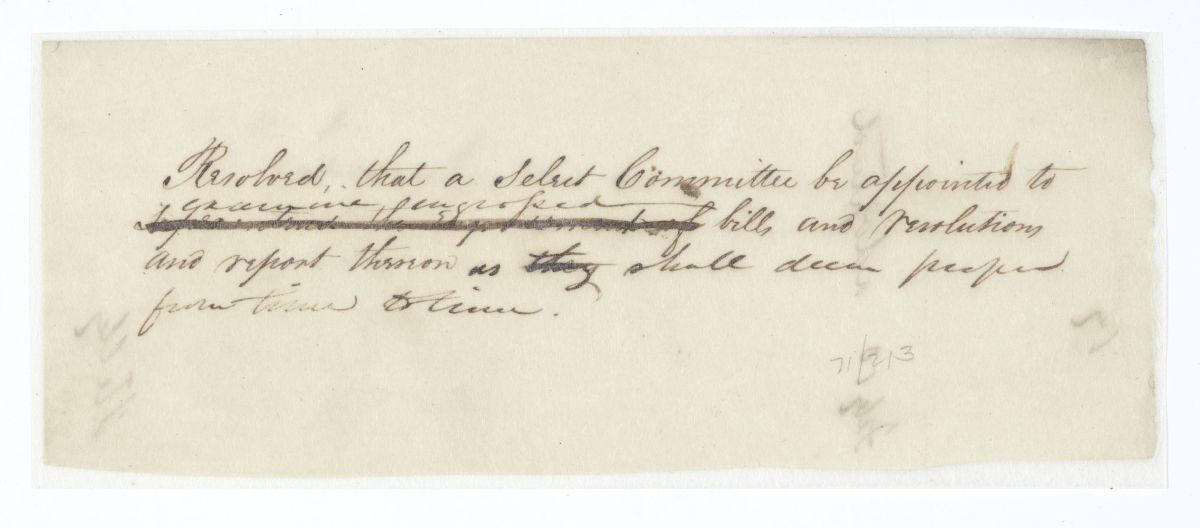 Resolved, that a select Committee be appointed to
examine engrossed
bills and resolutions
and report thereon as they shall deem proper
from time to time.
71/213